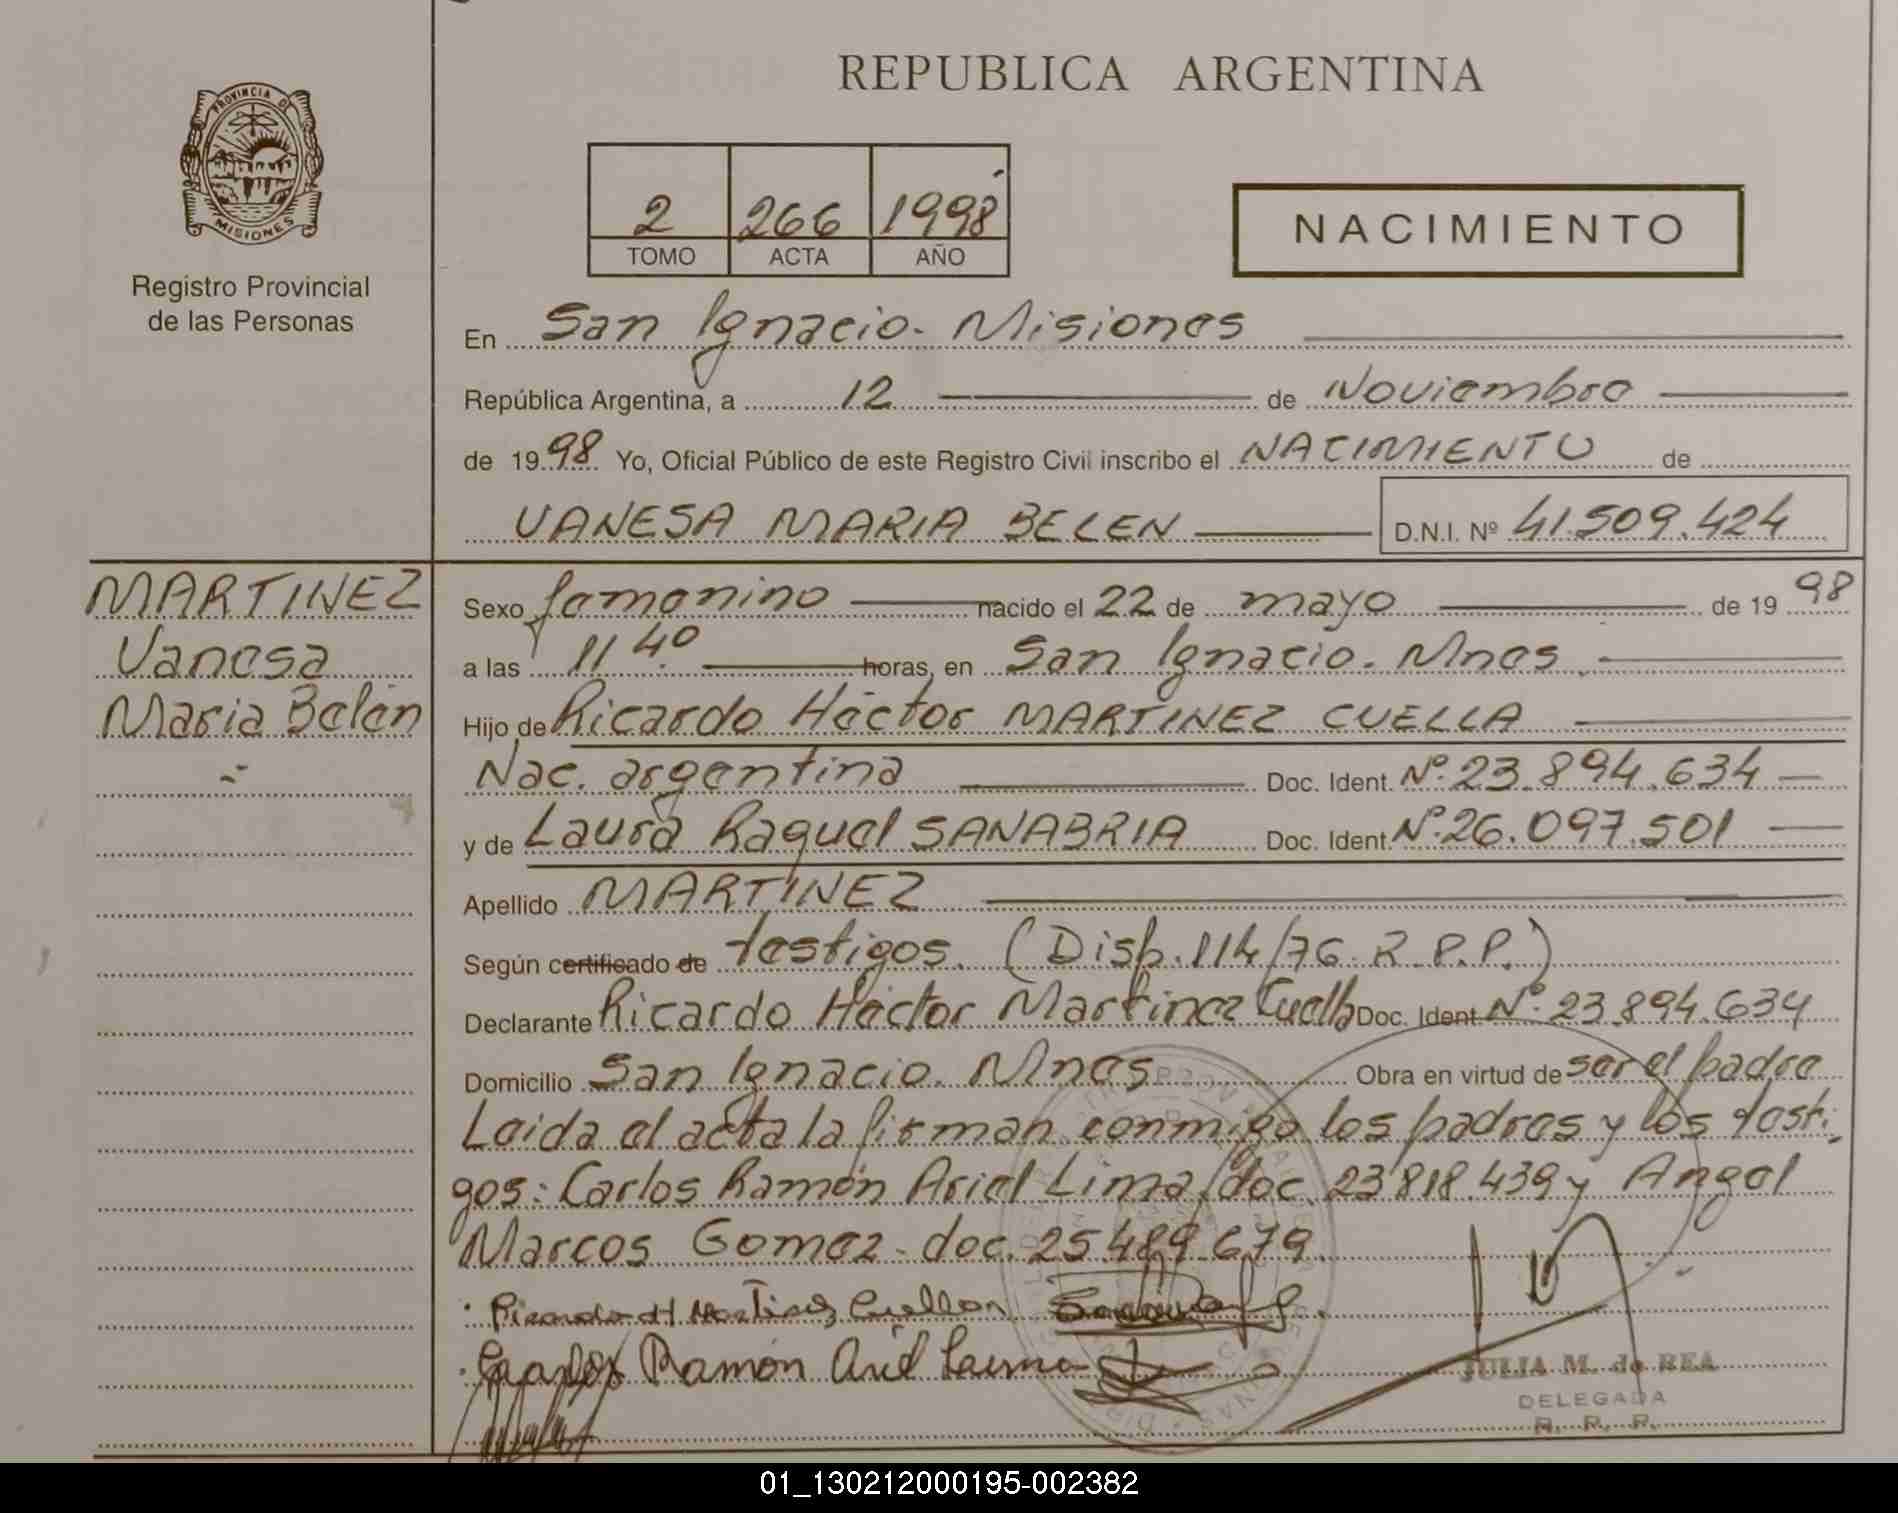 REPUBLICA ARGENTINA
PROVINCIA DE
MISIONES
Registro Provincial
de las Personas
2 266 1998
TOMO ACTA AÑO
NACIMIENTO
En San Ignacio. Misiones
República Argentina, a 12 de Noviembre
de 1998 Yo, Oficial Público de este Registro Civil inscribo el NACIMIENTO de
VANESA MARIA BELEN D.N.I. Nº 41.509.424
MARTINEZ
Vanesa
Maria Belén
Sexo femenino nacido el 22 de mayo de 1998
a las 11 40 horas, en San Ignacio. Mnes
Hijo de Ricardo Héctor MARTINEZ CUELLA
Nac. argentina Doc. Ident. Nº. 23.894.634
y de Laura Raquel SANABRIA Doc. Ident. Nº. 26.097.501
Apellido MARTINEZ
Según certificado de testigos. (Disp. 114/76. R.P.P.)
Declarante Ricardo Héctor Martinez Cuella Doc. Ident Nº. 23.894.634
Domicilio San Ignacio. Mnes Obra en virtud de ser el padre
Leida el acta la firman conmigo los padres y los testi-
gos: Carlos Ramón Ariel Lima, doc. 23.818.439 y Angel
Marcos Gomez. doc. 25.489.679.
Ricardo H Martinez Cuellar
Carlos Ramón Ariel Lima
JULIA M. de REA
DELEGADA
R. P. P.
01_130212000195-002382